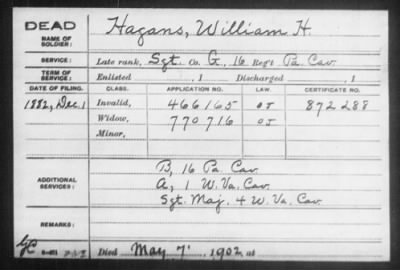 DEAD
NAME OF SOLDIER:
Hagans, William H.
SERVICE:
Late rank, Sgt. Co. G, 16 Reg't Pa. Cav.
TERM OF SERVICE:
Enlisted , 1 Discharged , 1
DATE OF FILING. CLASS. APPLICATION NO. LAW. CERTIFICATE NO.
1882, Dec. 1 Invalid, 466165 872288
Widow, 770716
Minor,
ADDITIONAL SERVICES:
B, 16 Pa. Cav.
A, 1 W. Va. Cav.
Sgt. Maj. 4 W. Va. Cav.
REMARKS:
Died May 7, 1902, at